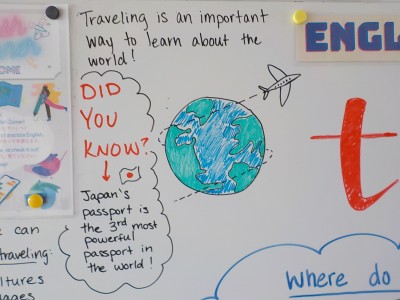 Traveling is an important
way to learn about the
world!
DID
YOU
KNOW?
Japan's
passport is
the 3rd most
powerful
passport in
the world!
OME
ENGL
t
e can
traveling:
ultures
ages
where do